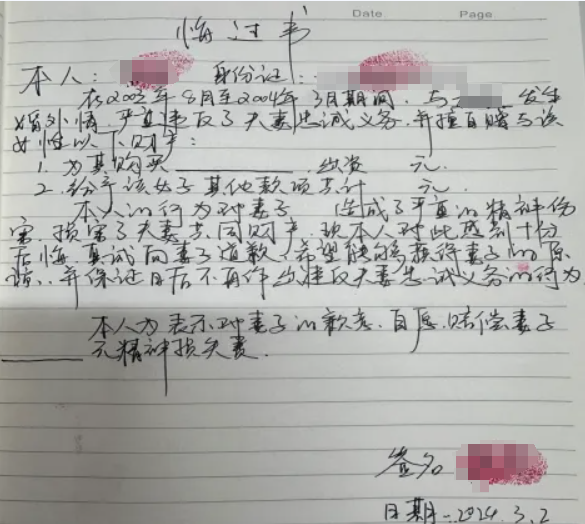 Date.    Page
悔过书
本人：    身份证：
在2002年8月至2004年3月期间，与    发生
婚外情，严重违反了夫妻忠诚义务，并擅自赠与该
女性以下财产：
1. 为其购买__________，出资    元.
2. 给予该女子其他款项共计    元.
本人的行为对妻子    造成了严重的精神伤
害，损害了夫妻共同财产，现本人对此感到十分
后悔，真诚向妻子道歉，希望能够获得妻子的原
谅，并保证日后不再作出违反夫妻忠诚义务的行为
本人为表示对妻子的歉意，自愿赔偿妻子
______元精神损失费.
签名
日期-2024.3.2